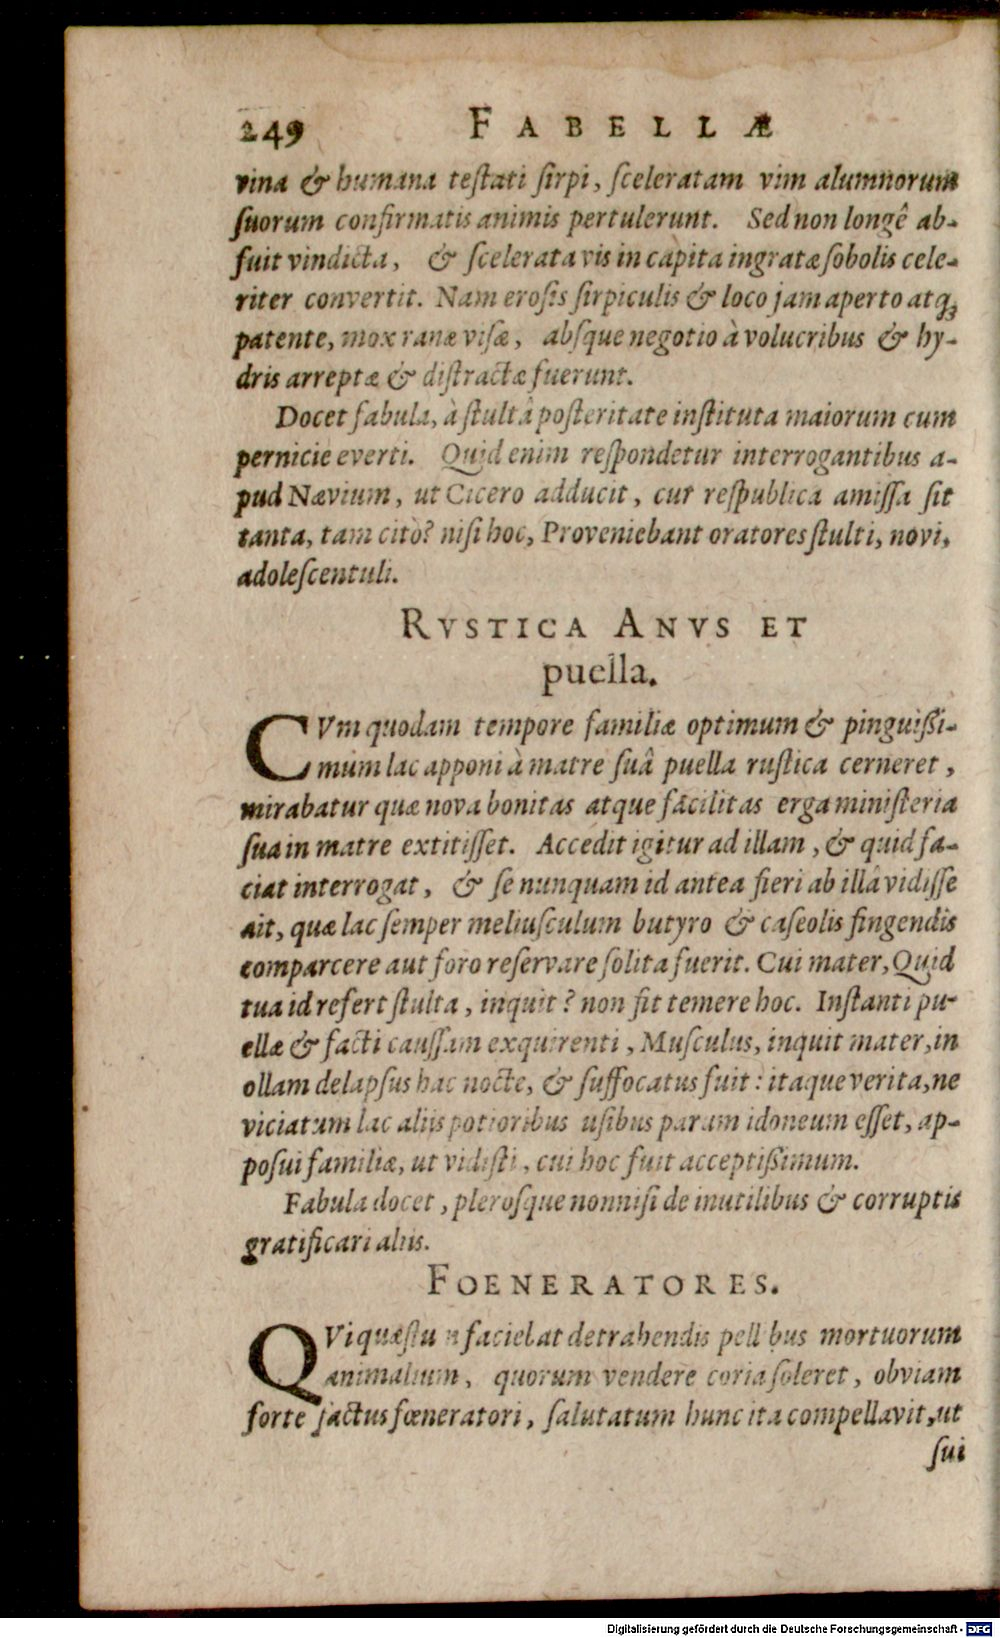 249 FABELLÆ
vina & humana teſtati ſirpi, ſceleratam vim alumnorum
ſuorum confirmatis animis pertulerunt. Sed non longê ab-
fuit vindicta, & ſcelerata vis in capita ingratæ ſobolis cele-
riter convertit. Nam eroſis ſirpiculis & loco jam aperto atq́;
patente, mox ranæ viſæ, abſque negotio à volucribus & hy-
dris arreptæ & diſtractæ fuerunt.
Docet fabula, à ſtultâ poſteritate inſtituta maiorum cum
pernicie everti. Quid enim reſpondetur interrogantibus a-
pud Nævium, ut Cicero adducit, cur reſpublica amiſſa ſit
tanta, tam citò? niſi hoc, Proveniebant oratores ſtulti, novi,
adoleſcentuli.
RVSTICA ANVS ET
puella.
CVm quodam tempore familiæ optimum & pinguißi-
mum lac apponi à matre ſuâ puella ruſtica cerneret,
mirabatur quæ nova bonitas atque facilitas erga miniſteria
ſua in matre extitiſſet. Accedit igitur ad illam, & quid fa-
ciat interrogat, & ſe nunquam id antea fieri ab illâ vidiſſe
ait, quæ lac ſemper meliuſculum butyro & caſeolis fingendis
comparcere aut foro reſervare ſolita fuerit. Cui mater, Quid
tua id refert ſtulta, inquit? non fit temere hoc. Inſtanti pu-
ellæ & facti cauſſam exquirenti, Muſculus, inquit mater, in
ollam delapſus hac nocte, & ſuffocatus fuit: itaque verita, ne
viciatum lac aliis potioribus uſibus parum idoneum eſſet, ap-
poſui familiæ, ut vidiſti, cui hoc fuit acceptißimum.
Fabula docet, pleroſque nonniſi de inutilibus & corruptis
gratificari aliis.
FOENERATORES.
QVi quæſtum faciebat detrahendis pellibus mortuorum
animalium, quorum vendere coria ſoleret, obviam
forte factus fœneratori, ſalutatum hunc ita compellavit, ut
ſui
Digitalisierung gefördert durch die Deutsche Forschungsgemeinschaft - DFG